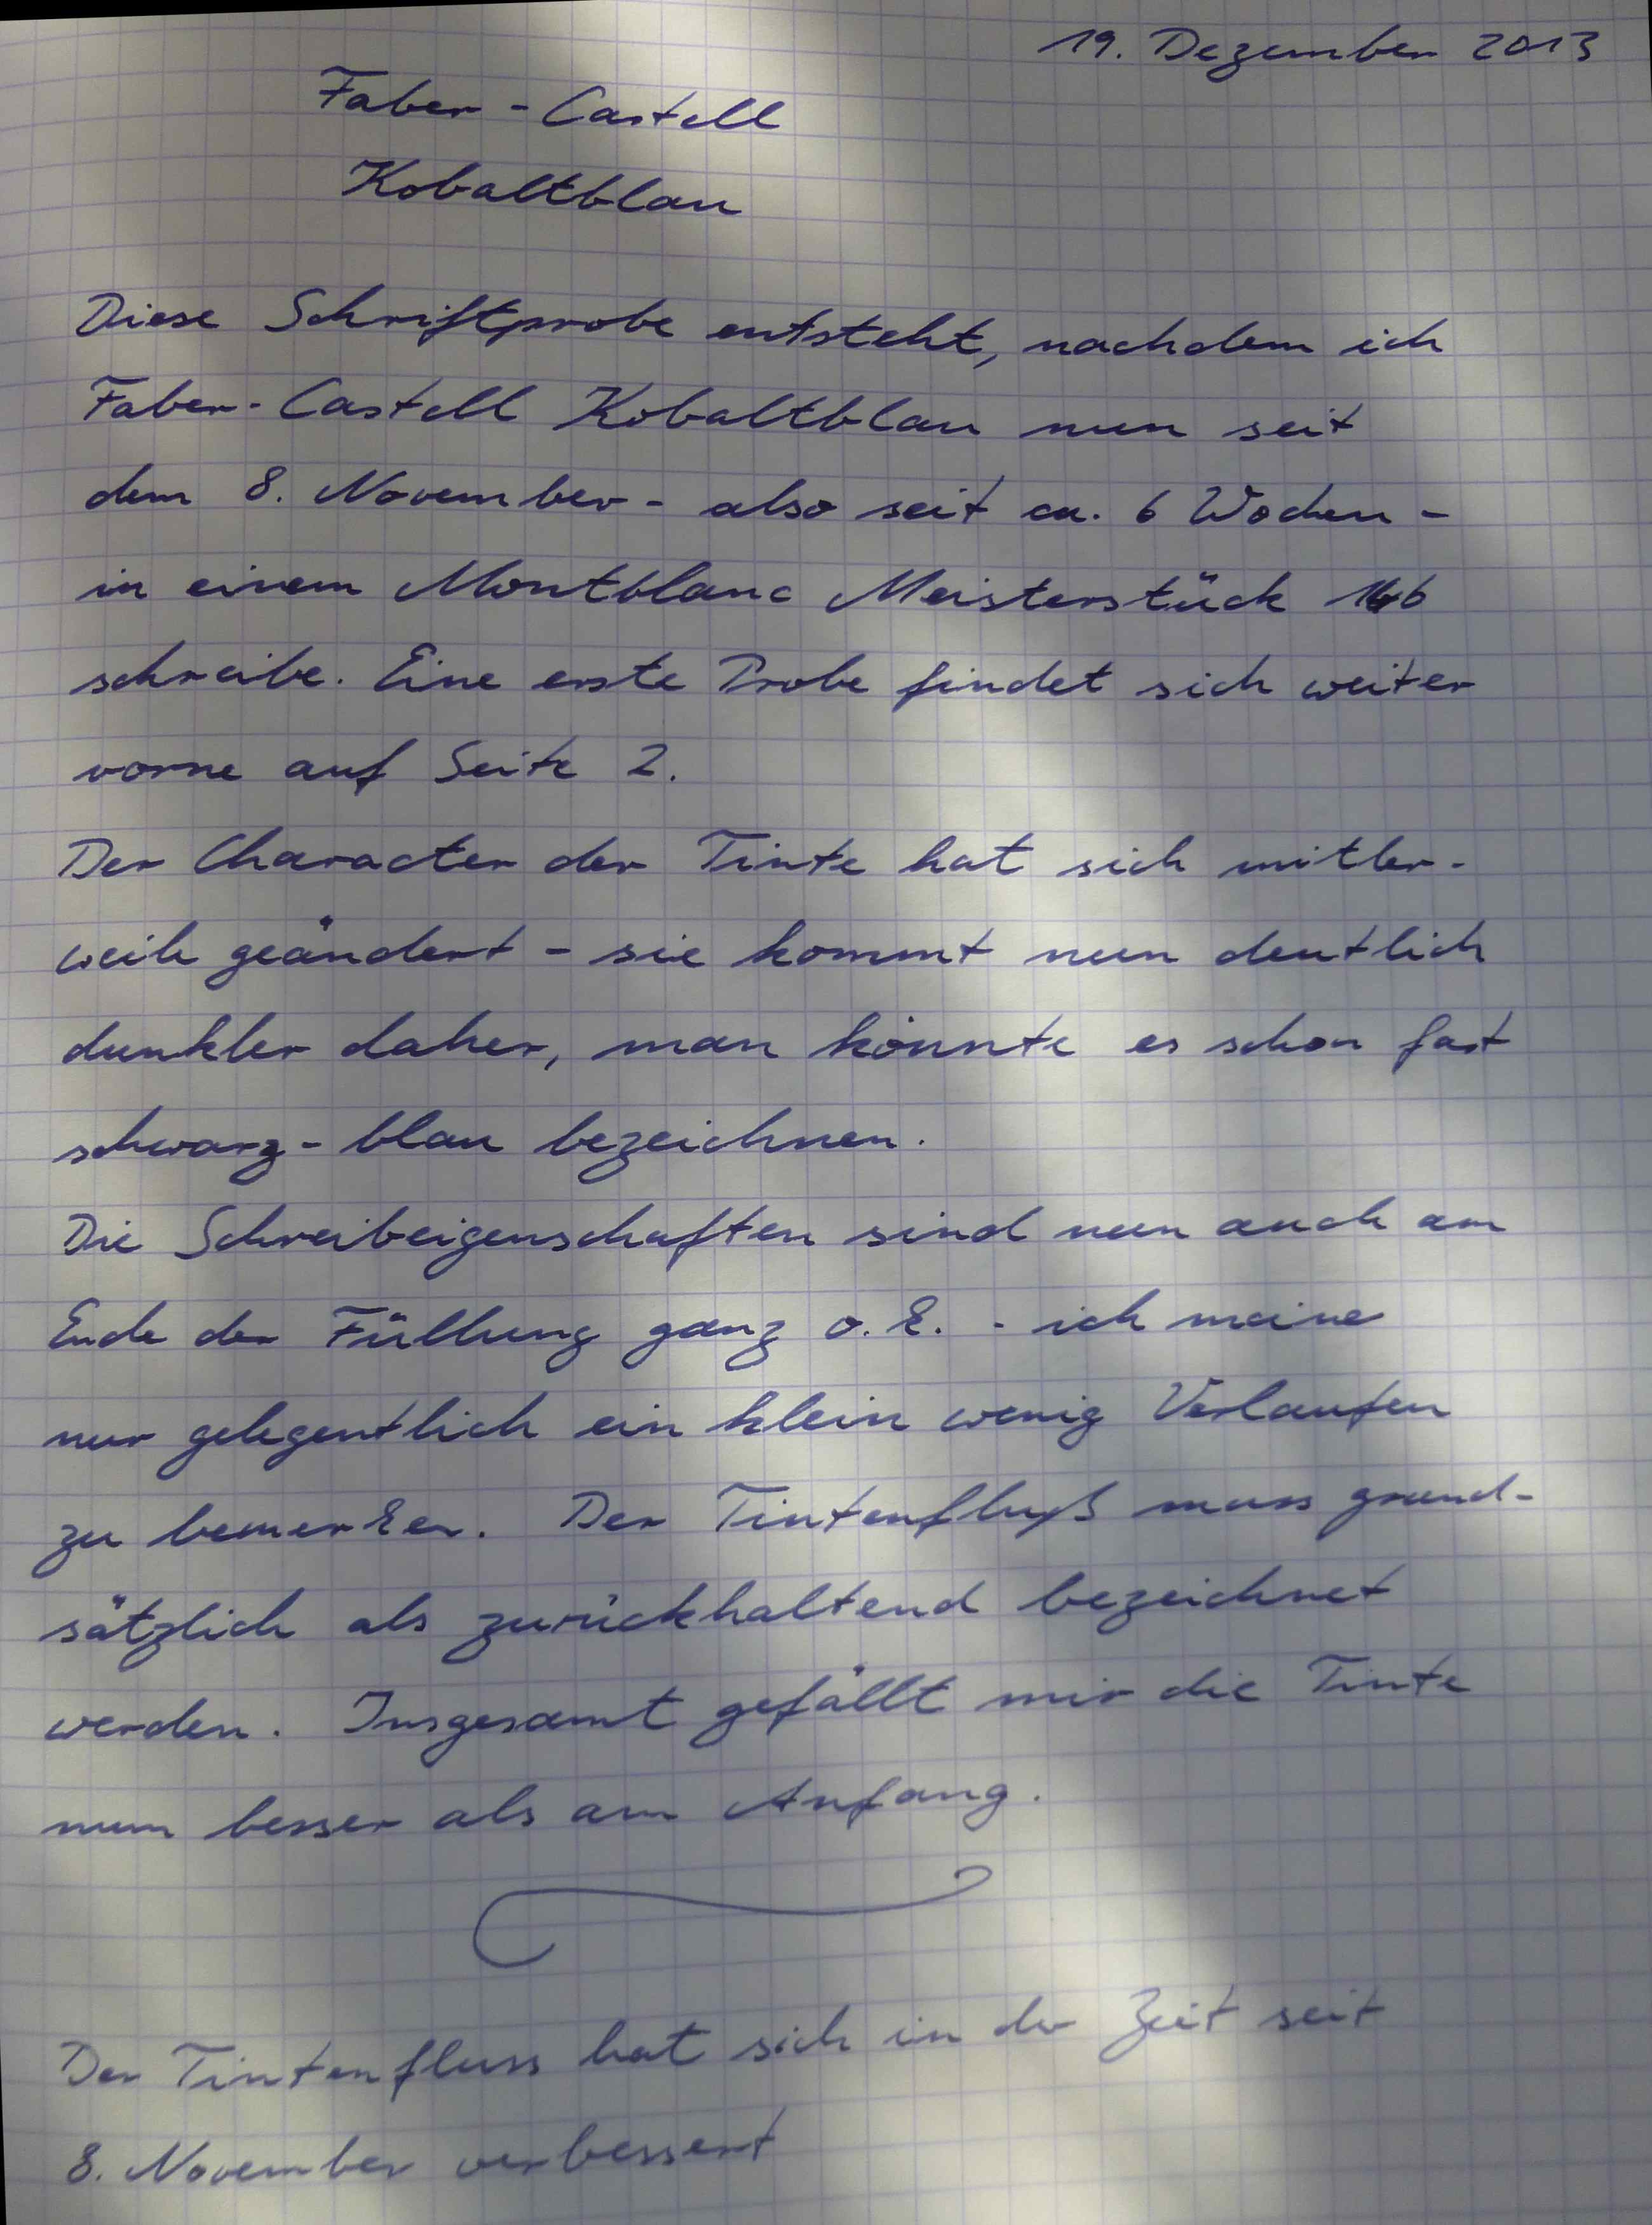 19. Dezember 2013
Faber-Castell
Kobaltblau
Diese Schriftprobe entsteht, nachdem ich
Faber-Castell Kobaltblau nun seit
dem 8. November - also seit ca. 6 Wochen -
in einem Montblanc Meisterstück 146
schreibe. Eine erste Probe findet sich weiter
vorne auf Seite 2.
Der Character der Tinte hat sich mitler-
weile geändert - sie kommt nun deutlich
dunkler daher, man könnte es schon fast
schwarz-blau bezeichnen.
Die Schreibeigenschaften sind nun auch am
Ende der Füllung ganz o.k. - ich meine
nur gelegentlich ein klein wenig Verlaufen
zu bemerken. Der Tintenfluß muss grund-
sätzlich als zurückhaltend bezeichnet
werden. Insgesamt gefällt mir die Tinte
nun besser als am Anfang.
Der Tintenfluss hat sich in der Zeit seit
8. November verbessert